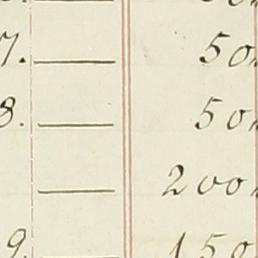 7. — 50
8. — 50
— 200
9. — 150